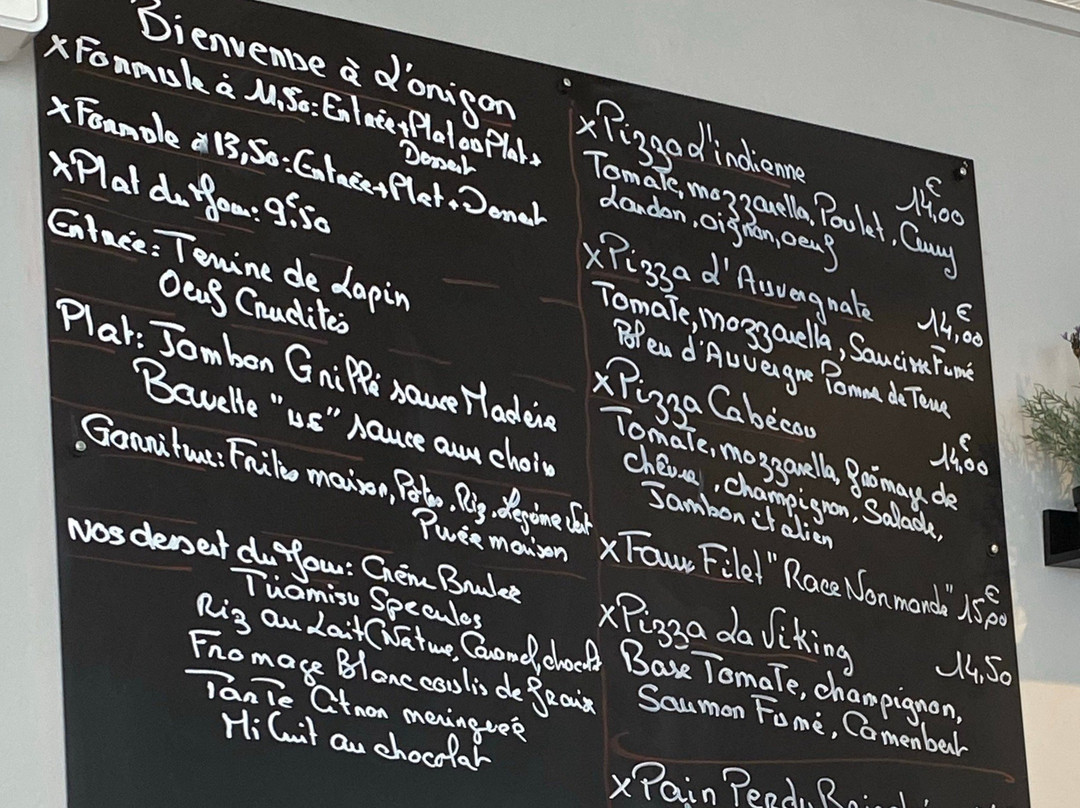 Bienvenue à L'origan
xFormule à 11,50: Entrée+Plat ou Plat+
Dessert
xFormule à 13,50: Entrée+Plat+Dessert
xPlat du Jour: 9€,50
Entrée: Terrine de Lapin
Oeuf Crudités
Plat: Jambon Griffé sauce Madère
Bavette "us" sauce aux choix
Garniture: Frites maison, Pâtes, Riz, Légume Vert
Purée maison
Nos dessert du Jour: Crème Brulée
Tiramisu Speculos
Riz au Lait (Nature, Caramel, chocolat
Fromage Blanc coulis de fraise
Tarte Citron meringuée
Mi Cuit au chocolat
xPizza d'indienne 14,00€
Tomate, mozzarella, Poulet, Curry
Lardon, oignon, oeuf
xPizza d'Auvergnate 14,00€
Tomate, mozzarella, Saucisse Fumé
Bleu d'Auvergne Pomme de Terre
xPizza Cabécou 14,00€
Tomate, mozzarella, fromage de
chèvre, champignon, Salade,
Jambon italien
xFaux Filet "Race Normande" 15,00€
xPizza La Viking 14,50
Base Tomate, champignon,
Saumon Fumé, Camenbert
xPain Perdu